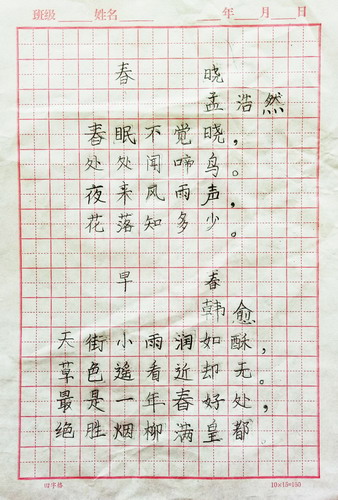 班级 姓名 年 月 日
春 晓
孟浩然
春眠不觉晓，
处处闻啼鸟。
夜来风雨声，
花落知多少。
早 春
韩愈
天街小雨润如酥，
草色遥看近却无。
最是一年春好处，
绝胜烟柳满皇都。
四字格 10×15=150